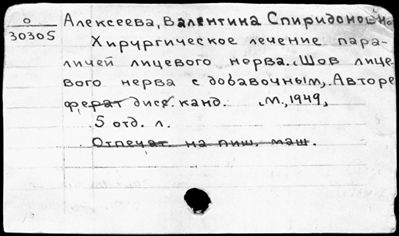 О
30305
Алексеева, Валентина Спиридоновна
Хирургическое лечение пара-
личей лицевого нерва. (Шов лице
вого нерва с добавочным). Авторе
ферат дисс. канд. М., 1949,
5 отд. л.
Отпечат. на пиш. маш.